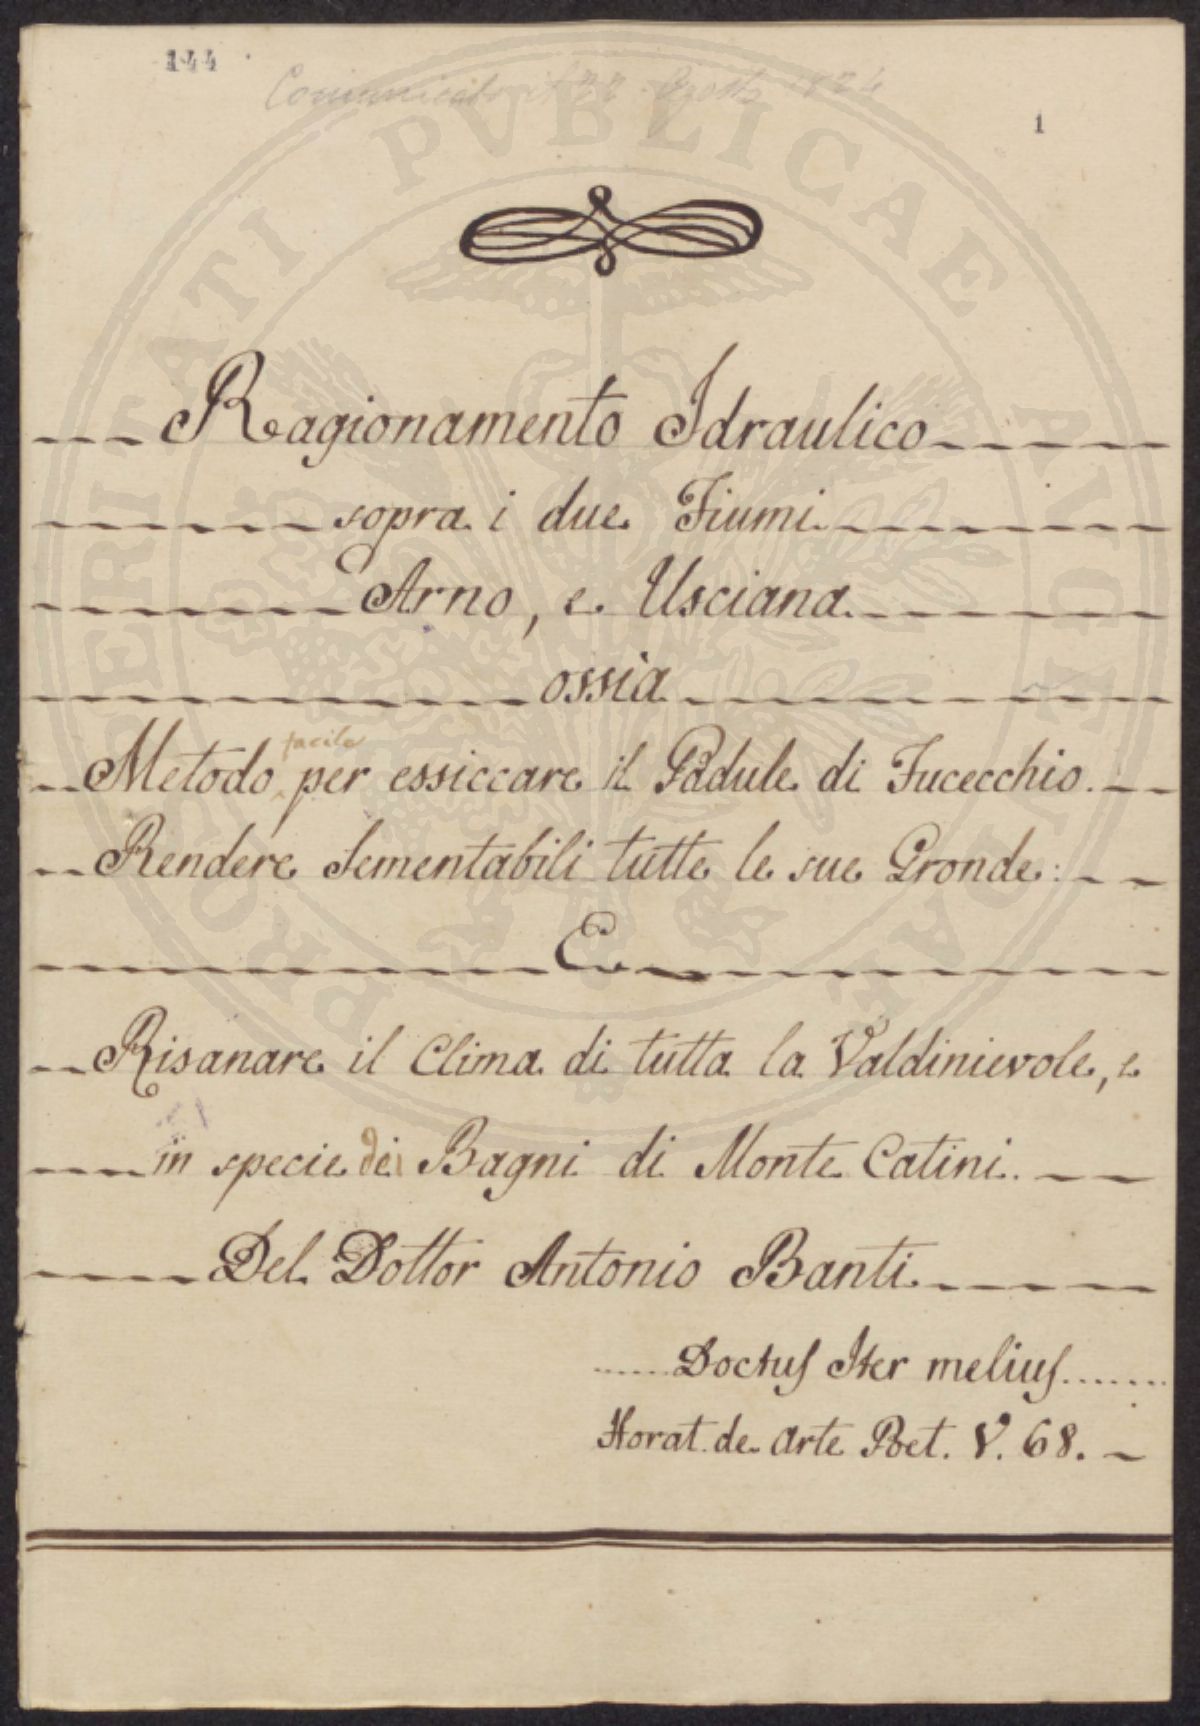 144
Comunicato il 22 Agosto 1824
1
PROSPERITATI PVBLICAE AVGENDAE
Ragionamento Idraulico
sopra i due Fiumi
Arno, e Usciana
ossia
facile
Metodo per essiccare il Padule di Fucecchio.
Rendere Sementabili tutte le sue Gronde:
E
Risanare il Clima di tutta la Valdinievole, e
in specie dei Bagni di Monte Catini.
Del Dottor Antonio Banti
......Doctus Iter melius.......
Horat. de Arte Poet. V. 68.